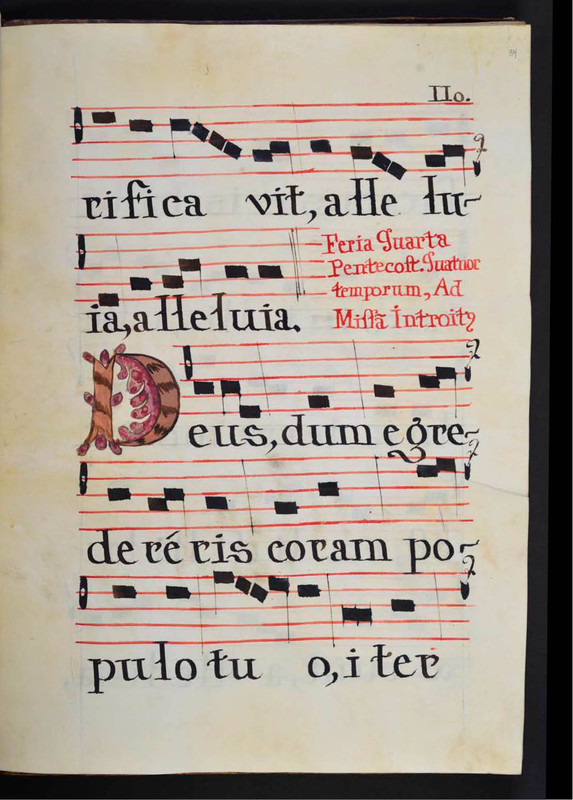 110.
rifica vit, alle lu-
ia, alleluia.
Feria Quarta
Pentecost. Quatuor
temporum, Ad
Missã Introitꝰ
Deus, dum egre-
deréris coram po-
pulo tu o, i ter